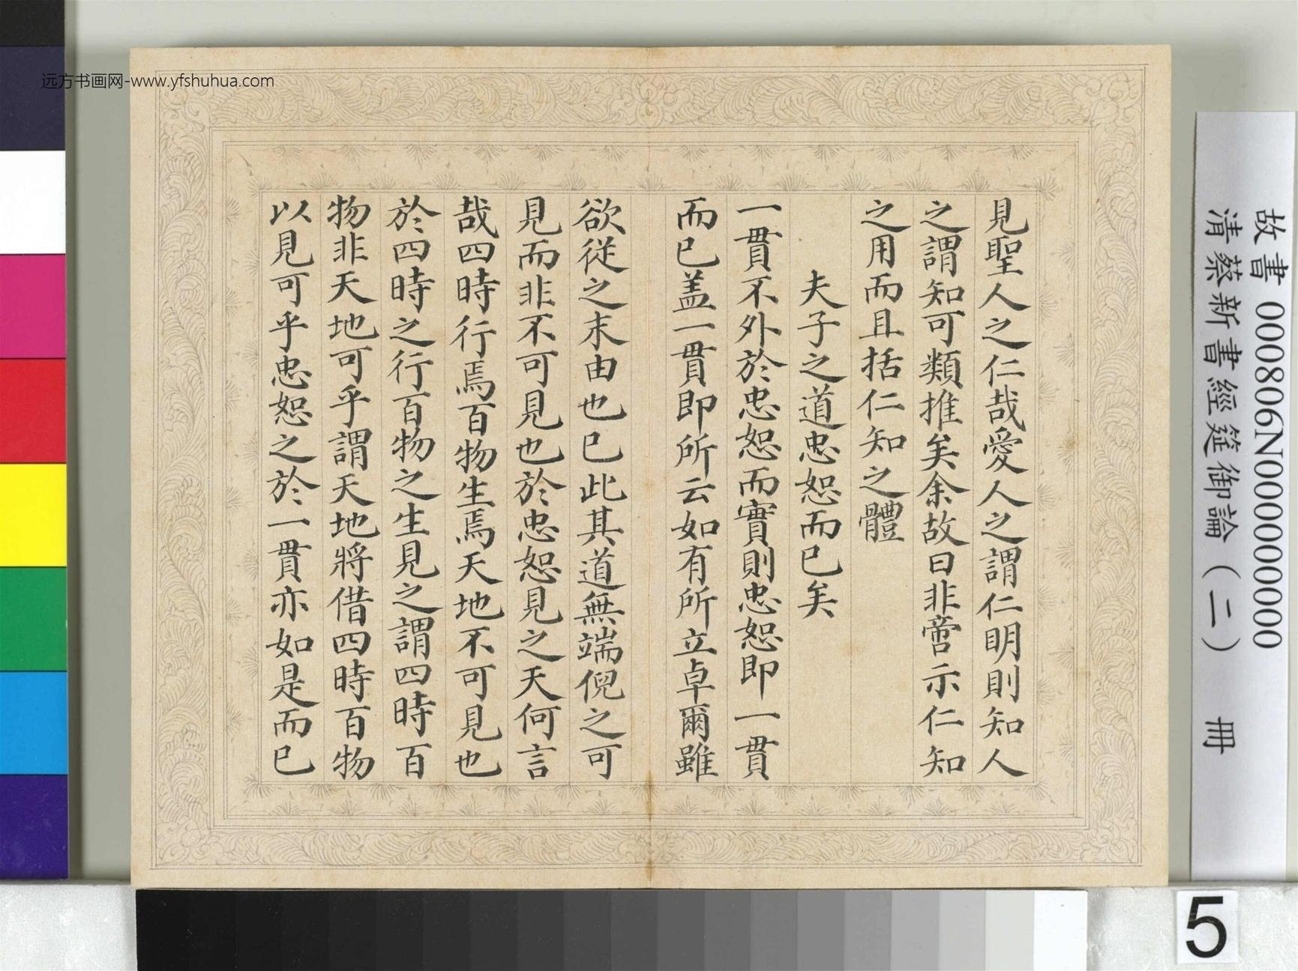 远方书画网-www.yfshuhua.com
見聖人之仁哉愛人之謂仁明則知人
之謂知可類推矣余故曰非啻示仁知
之用而且括仁知之體
夫子之道忠恕而已矣
一貫不外於忠恕而實則忠恕即一貫
而已盖一貫即所云如有所立卓爾雖
欲従之末由也已此其道無端倪之可
見而非不可見也於忠恕見之天何言
哉四時行焉百物生焉天地不可見也
於四時之行百物之生見之謂四時百
物非天地可乎謂天地將借四時百物
以見可乎忠恕之於一貫亦如是而已
故書 000806N000000000
清蔡新書經筵御論(二) 冊
5